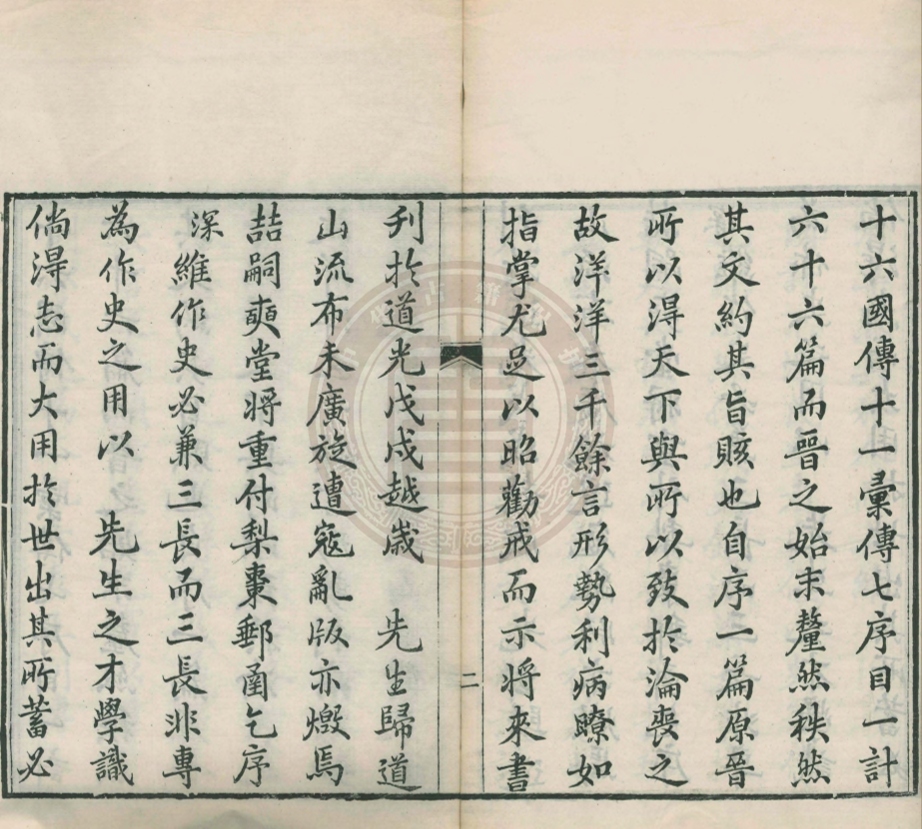 十六國傳十一彙傳七序目一計
六十六篇而晉之始末釐然秩然
其文約其旨賅也自序一篇原晉
所以淂天下與所以致扵淪喪之
故洋洋三千餘言形勢利病瞭如
指掌尤足以昭勸戒而示將來書
二
刋扵道光戊戌越歲　先生歸道
山流布未廣旋遭寇亂版亦燬焉
喆嗣奭堂將重付梨棗郵圅乞序
深維作史必兼三長而三長非專
為作史之用以　先生之才學識
倘淂志而大用扵世出其所蓄必